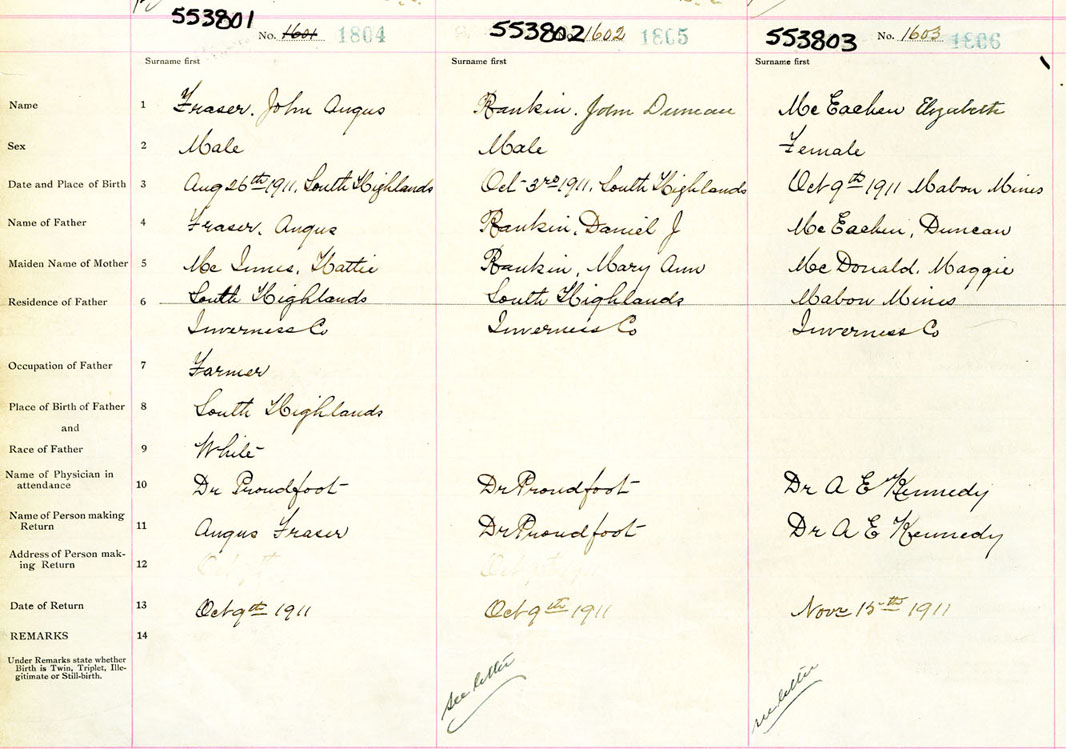 553801 No. 1601 1804 553802 No. 1602 1805 553803 No. 1603 1806
Surname first Surname first Surname first
Name 1 Fraser, John Angus Rankin, John Duncan Mc Eachen Elizabeth
Sex 2 Male Male Female
Date and Place of Birth 3 Aug 26th 1911, South Highlands Oct 3rd 1911, South Highlands Oct 9th 1911 Mabou Mines
Name of Father 4 Fraser, Angus Rankin, Daniel J Mc Eachen, Duncan
Maiden Name of Mother 5 Mc Innes, Hattie Rankin, Mary Ann Mc Donald, Maggie
Residence of Father 6 South Highlands South Highlands Mabou Mines
Inverness Co Inverness Co Inverness Co
Occupation of Father 7 Farmer
Place of Birth of Father 8 South Highlands
and
Race of Father 9 White
Name of Physician in
attendance 10 Dr Proudfoot Dr Proudfoot Dr A E Kennedy
Name of Person making
Return 11 Angus Fraser Dr Proudfoot Dr A E Kennedy
Address of Person mak-
ing Return 12
Date of Return 13 Oct 9th 1911 Oct 9th 1911 Nov 15th 1911
REMARKS 14
Under Remarks state whether
Birth is Twin, Triplet, Ille-
gitimate or Still-birth.
see letter see letter